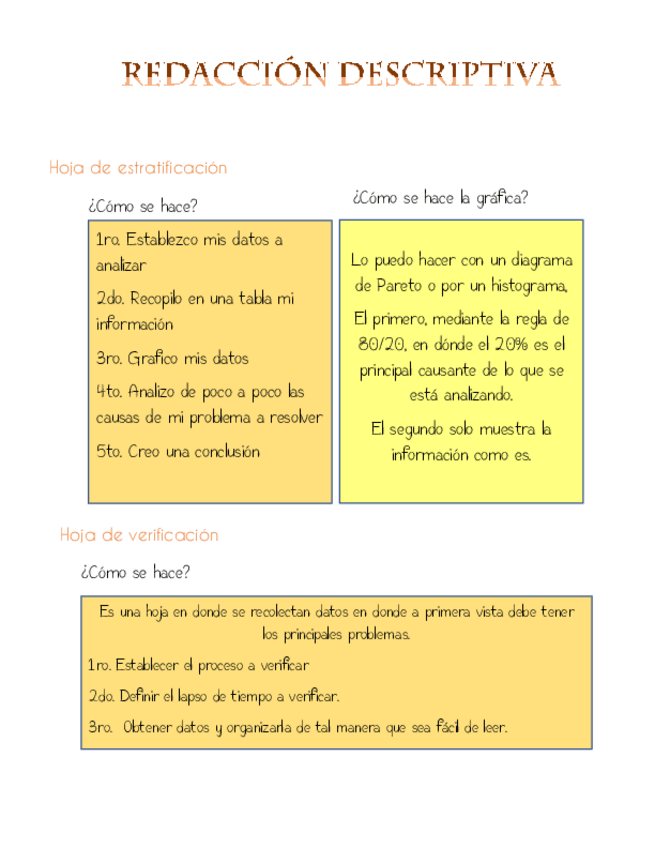 REDACCIÓN DESCRIPTIVA
Hoja de estratificación
¿Cómo se hace?
1ro. Establezco mis datos a
analizar
2do. Recopilo en una tabla mi
información
3ro. Grafico mis datos
4to. Analizo de poco a poco las
causas de mi problema a resolver
5to. Creo una conclusión
¿Cómo se hace la gráfica?
Lo puedo hacer con un diagrama
de Pareto o por un histograma,
El primero, mediante la regla de
80/20, en dónde el 20% es el
principal causante de lo que se
está analizando.
El segundo solo muestra la
información como es.
Hoja de verificación
¿Cómo se hace?
Es una hoja en donde se recolectan datos en donde a primera vista debe tener
los principales problemas.
1ro. Establecer el proceso a verificar
2do. Definir el lapso de tiempo a verificar.
3ro. Obtener datos y organizarla de tal manera que sea fácil de leer.